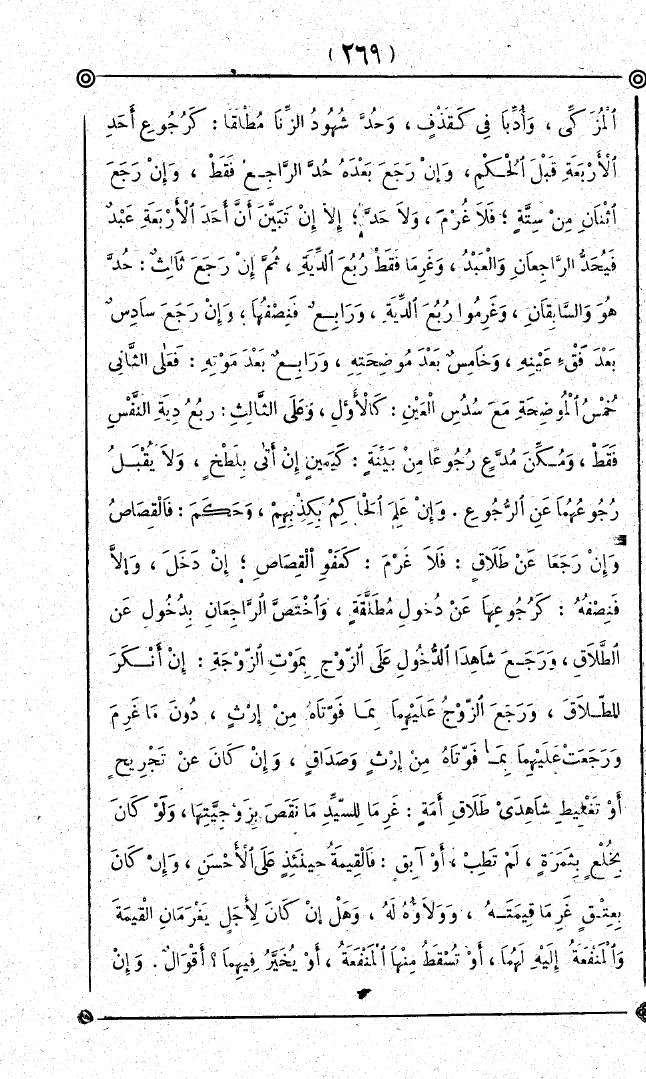 (٢٦٩)
الْمُزَكِّى ، وَأُدِّبَا فِى كَقَذْفٍ ، وَحُدَّ شُهُودُ الزِّنَا مُطْلَقًا : كَرُجُوعِ أَحَدِ
الْأَرْبَعَةِ قَبْلَ الْحُكْمِ ، وَإِنْ رَجَعَ بَعْدَهُ حُدَّ الرَّاجِعُ فَقَطْ ، وَإِنْ رَجَعَ
اثْنَانِ مِنْ سِتَّةٍ ؛ فَلَا غُرْمَ ، وَلَا حَدَّ ؛ إِلَّا إِنْ تَبَيَّنَ أَنَّ أَحَدَ الْأَرْبَعَةِ عَبْدٌ
فَيُحَدُّ الرَّاجِعَانِ وَالْعَبْدُ ، وَغَرِمَا فَقَطْ رُبُعَ الدِّيَةِ ، ثُمَّ إِنْ رَجَعَ ثَالِثٌ : حُدَّ
هُوَ وَالسَّابِقَانِ ، وَغَرِمُوا رُبُعَ الدِّيَةِ ، وَرَابِعٌ فَنِصْفُهَا ، وَإِنْ رَجَعَ سَادِسٌ
بَعْدَ فَقْءِ عَيْنِهِ ، وَخَامِسٌ بَعْدَ مُوضِحَتِهِ ، وَرَابِعٌ بَعْدَ مَوْتِهِ : فَعَلَى الثَّانِى
خُمْسُ الْمُوضِحَةِ مَعَ سُدُسِ الْعَيْنِ : كَالْأَوَّلِ ، وَعَلَى الثَّالِثِ : رُبُعُ دِيَةِ النَّفْسِ
فَقَطْ ، وَمُكِّنَ مُدَّعٍ رُجُوعًا مِنْ بَيِّنَةٍ : كَيَمِينٍ إِنْ أَتَى بِلَطْخٍ ، وَلَا يُقْبَلُ
رُجُوعُهُمَا عَنِ الرُّجُوعِ . وَإِنْ عَلِمَ الْحَاكِمُ بِكَذِبِهِمْ ، وَحَكَمَ : فَالْقِصَاصُ
وَإِنْ رَجَعَا عَنْ طَلَاقٍ : فَلَا غُرْمَ : كَعَفْوِ الْقِصَاصِ ؛ إِنْ دَخَلَ ، وَإِلَّا
فَنِصْفُهُ : كَرُجُوعِهِمَا عَنْ دُخُولِ مُطَلَّقَةٍ ، وَاخْتَصَّ الرَّاجِعَانِ بِدُخُولٍ عَنِ
الطَّلَاقِ ، وَرَجَعَ شَاهِدَا الدُّخُولِ عَلَى الزَّوْجِ بِمَوْتِ الزَّوْجَةِ : إِنْ أَنْكَرَ
الطَّلَاقَ ، وَرَجَعَ الزَّوْجُ عَلَيْهِمَا بِمَا فَوَّتَاهُ مِنْ إِرْثٍ ، دُونَ مَا غَرِمَ
وَرَجَعَتْ عَلَيْهِمَا بِمَا فَوَّتَاهُ مِنْ إِرْثٍ وَصَدَاقٍ ، وَإِنْ كَانَ عَنْ تَجْرِيحٍ
أَوْ تَغْلِيطِ شَاهِدَىْ طَلَاقِ أَمَةٍ : غَرِمَا لِلسَّيِّدِ مَا نَقَصَ بِزَوْجِيَّتِهَا ، وَلَوْ كَانَ
بِخُلْعٍ بِثَمَرَةٍ ، لَمْ تَطِبْ ، أَوْ آبِقٍ : فَالْقِيمَةُ حِينَئِذٍ عَلَى الْأَحْسَنِ ، وَإِنْ كَانَ
بِعِتْقٍ غَرِمَا قِيمَتَهُ ، وَوَلَاؤُهُ لَهُ ، وَهَلْ إِنْ كَانَ لِأَجَلٍ يَغْرَمَانِ الْقِيمَةَ
وَالْمَنْفَعَةُ إِلَيْهِ لَهُمَا ، أَوْ تُسْقَطُ مِنْهَا الْمَنْفَعَةُ ، أَوْ يُخَيَّرُ فِيهِمَا ؟ أَقْوَالٌ . وَإِنْ